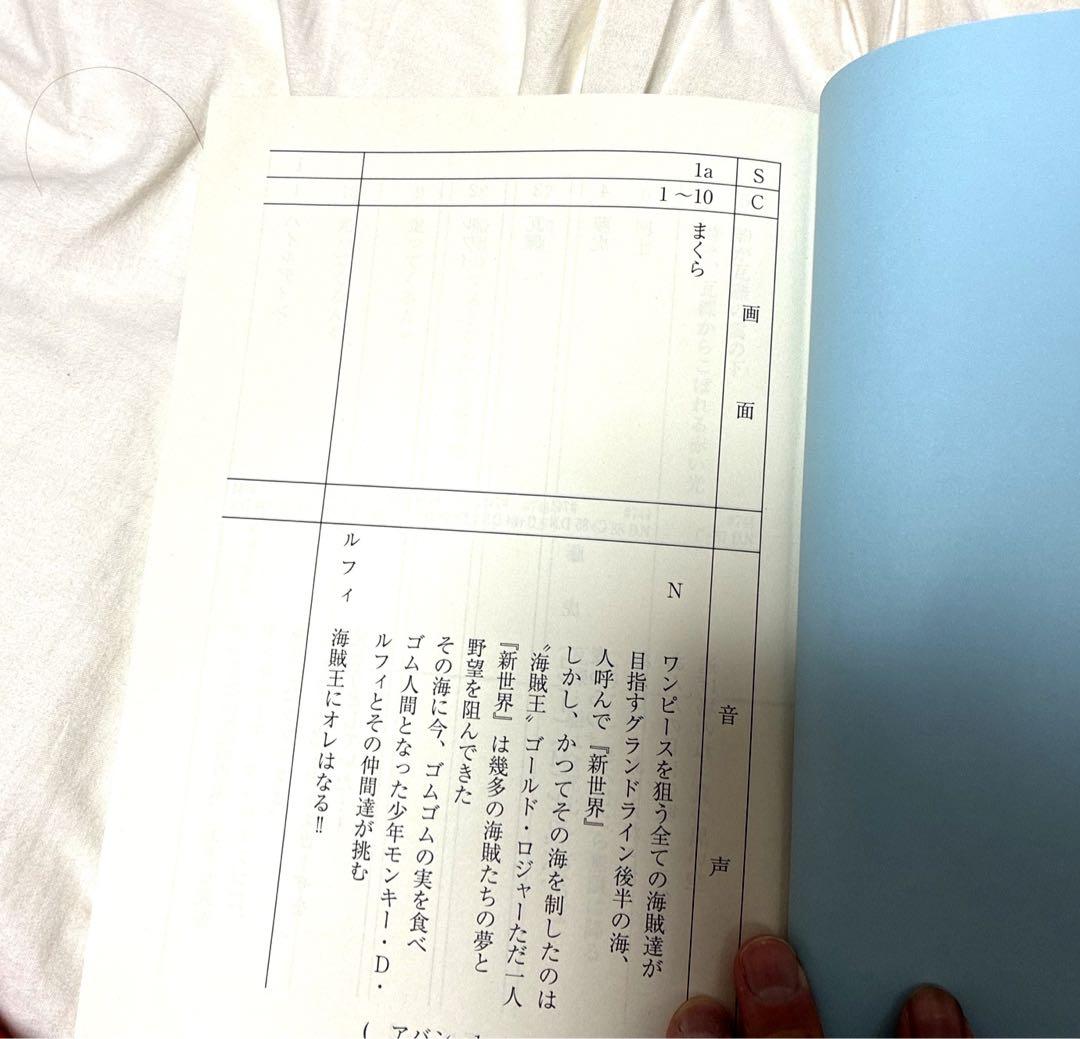 S
C
画面
音声
1a
1～10
まくら
N
ワンピースを狙う全ての海賊達が
目指すグランドライン後半の海、
人呼んで『新世界』
しかし、かつてその海を制したのは
〝海賊王〟ゴールド・ロジャーただ一人
『新世界』は幾多の海賊たちの夢と
野望を阻んできた
その海に今、ゴムゴムの実を食べ
ゴム人間となった少年モンキー・D・
ルフィとその仲間達が挑む
ルフィ
海賊王にオレはなる!!
（アバン